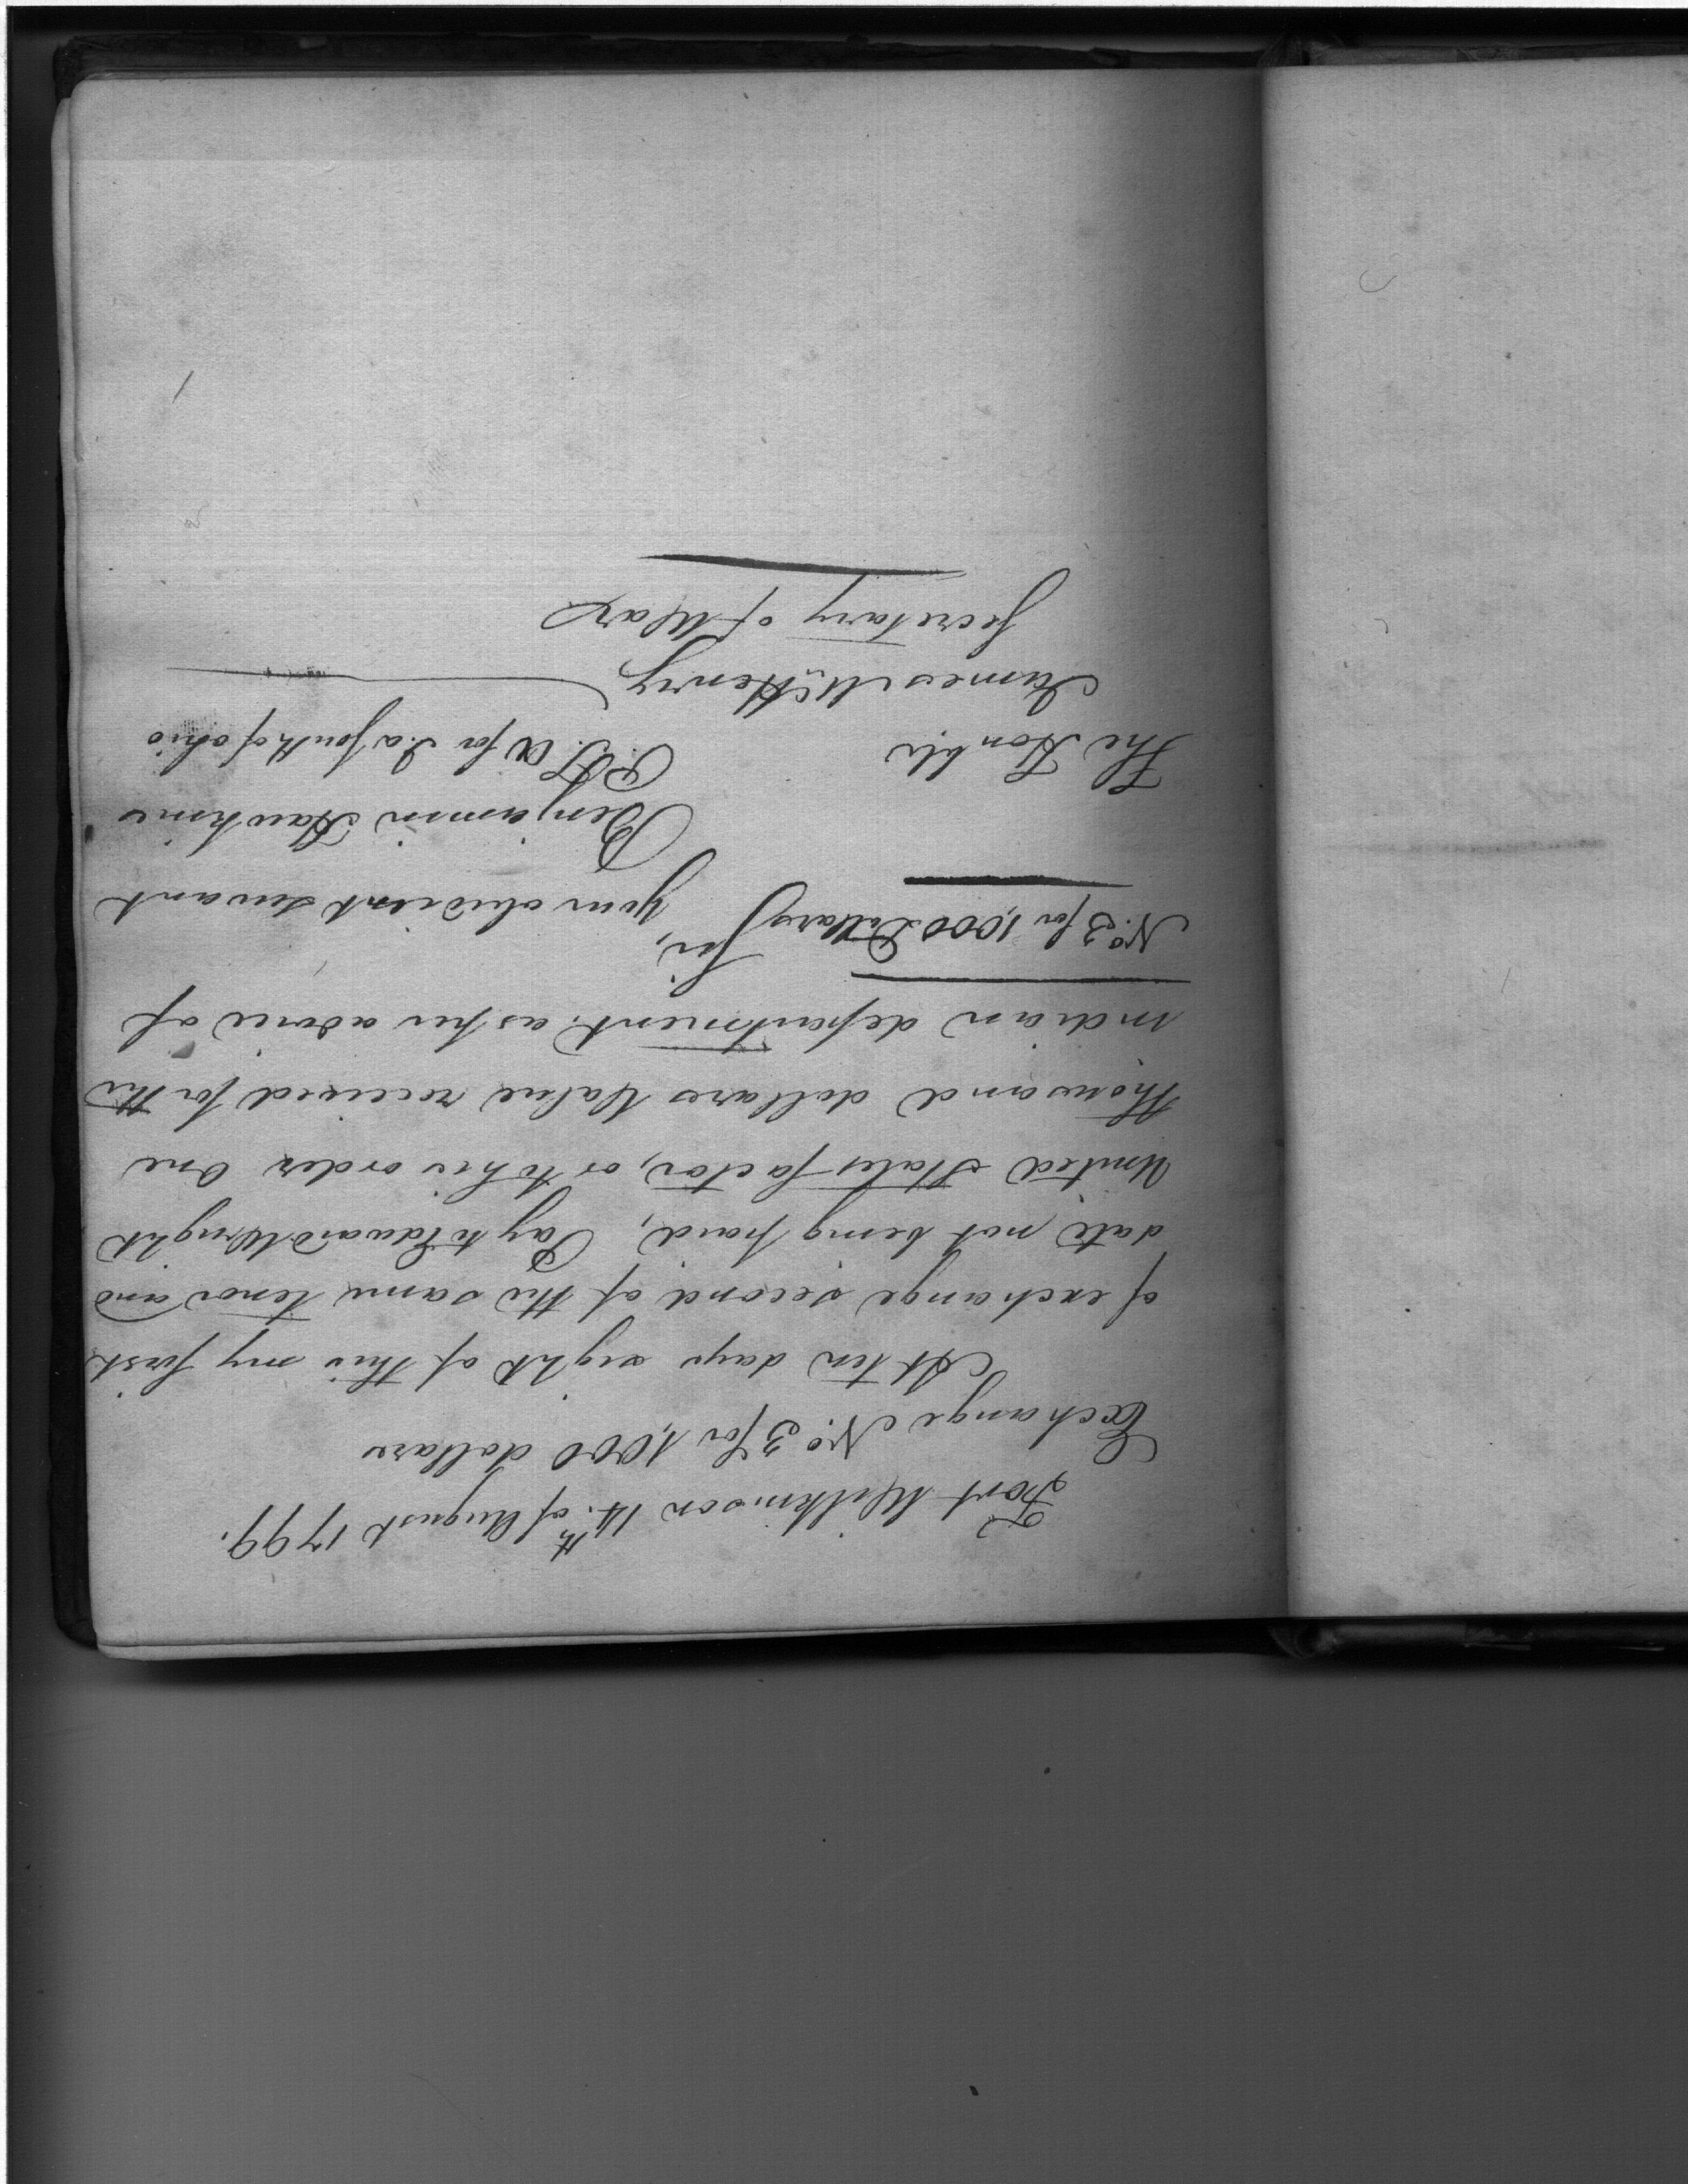 Fort Wilkinson 14.th of August 1799.
Exchange No. 3 for 1,000 dollars
At ten days sight of this my first
of exchange second of the same tenor and
date not being paid, Pay to Edward Wright
United States factor, or to his order One
thousand dollars Value received for the
indian department. as per advice of
No. 3 for 1,000 Dollars Sir,
your obedient servant
Benjamin Hawkins
The Honble P. T. A for I. a South of ohio
James McHenry
Secretary of War